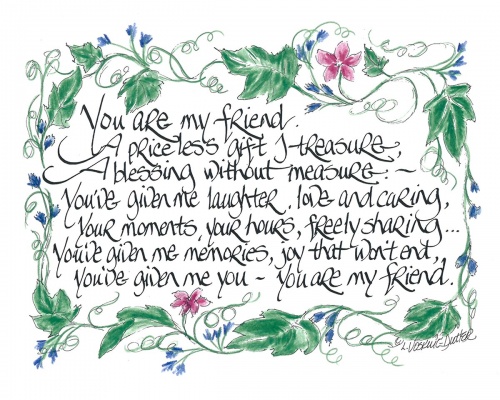 You are my friend.
A priceless gift I treasure,
A blessing without measure. –
You've given me laughter, love and caring,
Your moments, your hours, freely sharing...
You've given me memories, joy that won't end,
You've given me you – You are my friend.